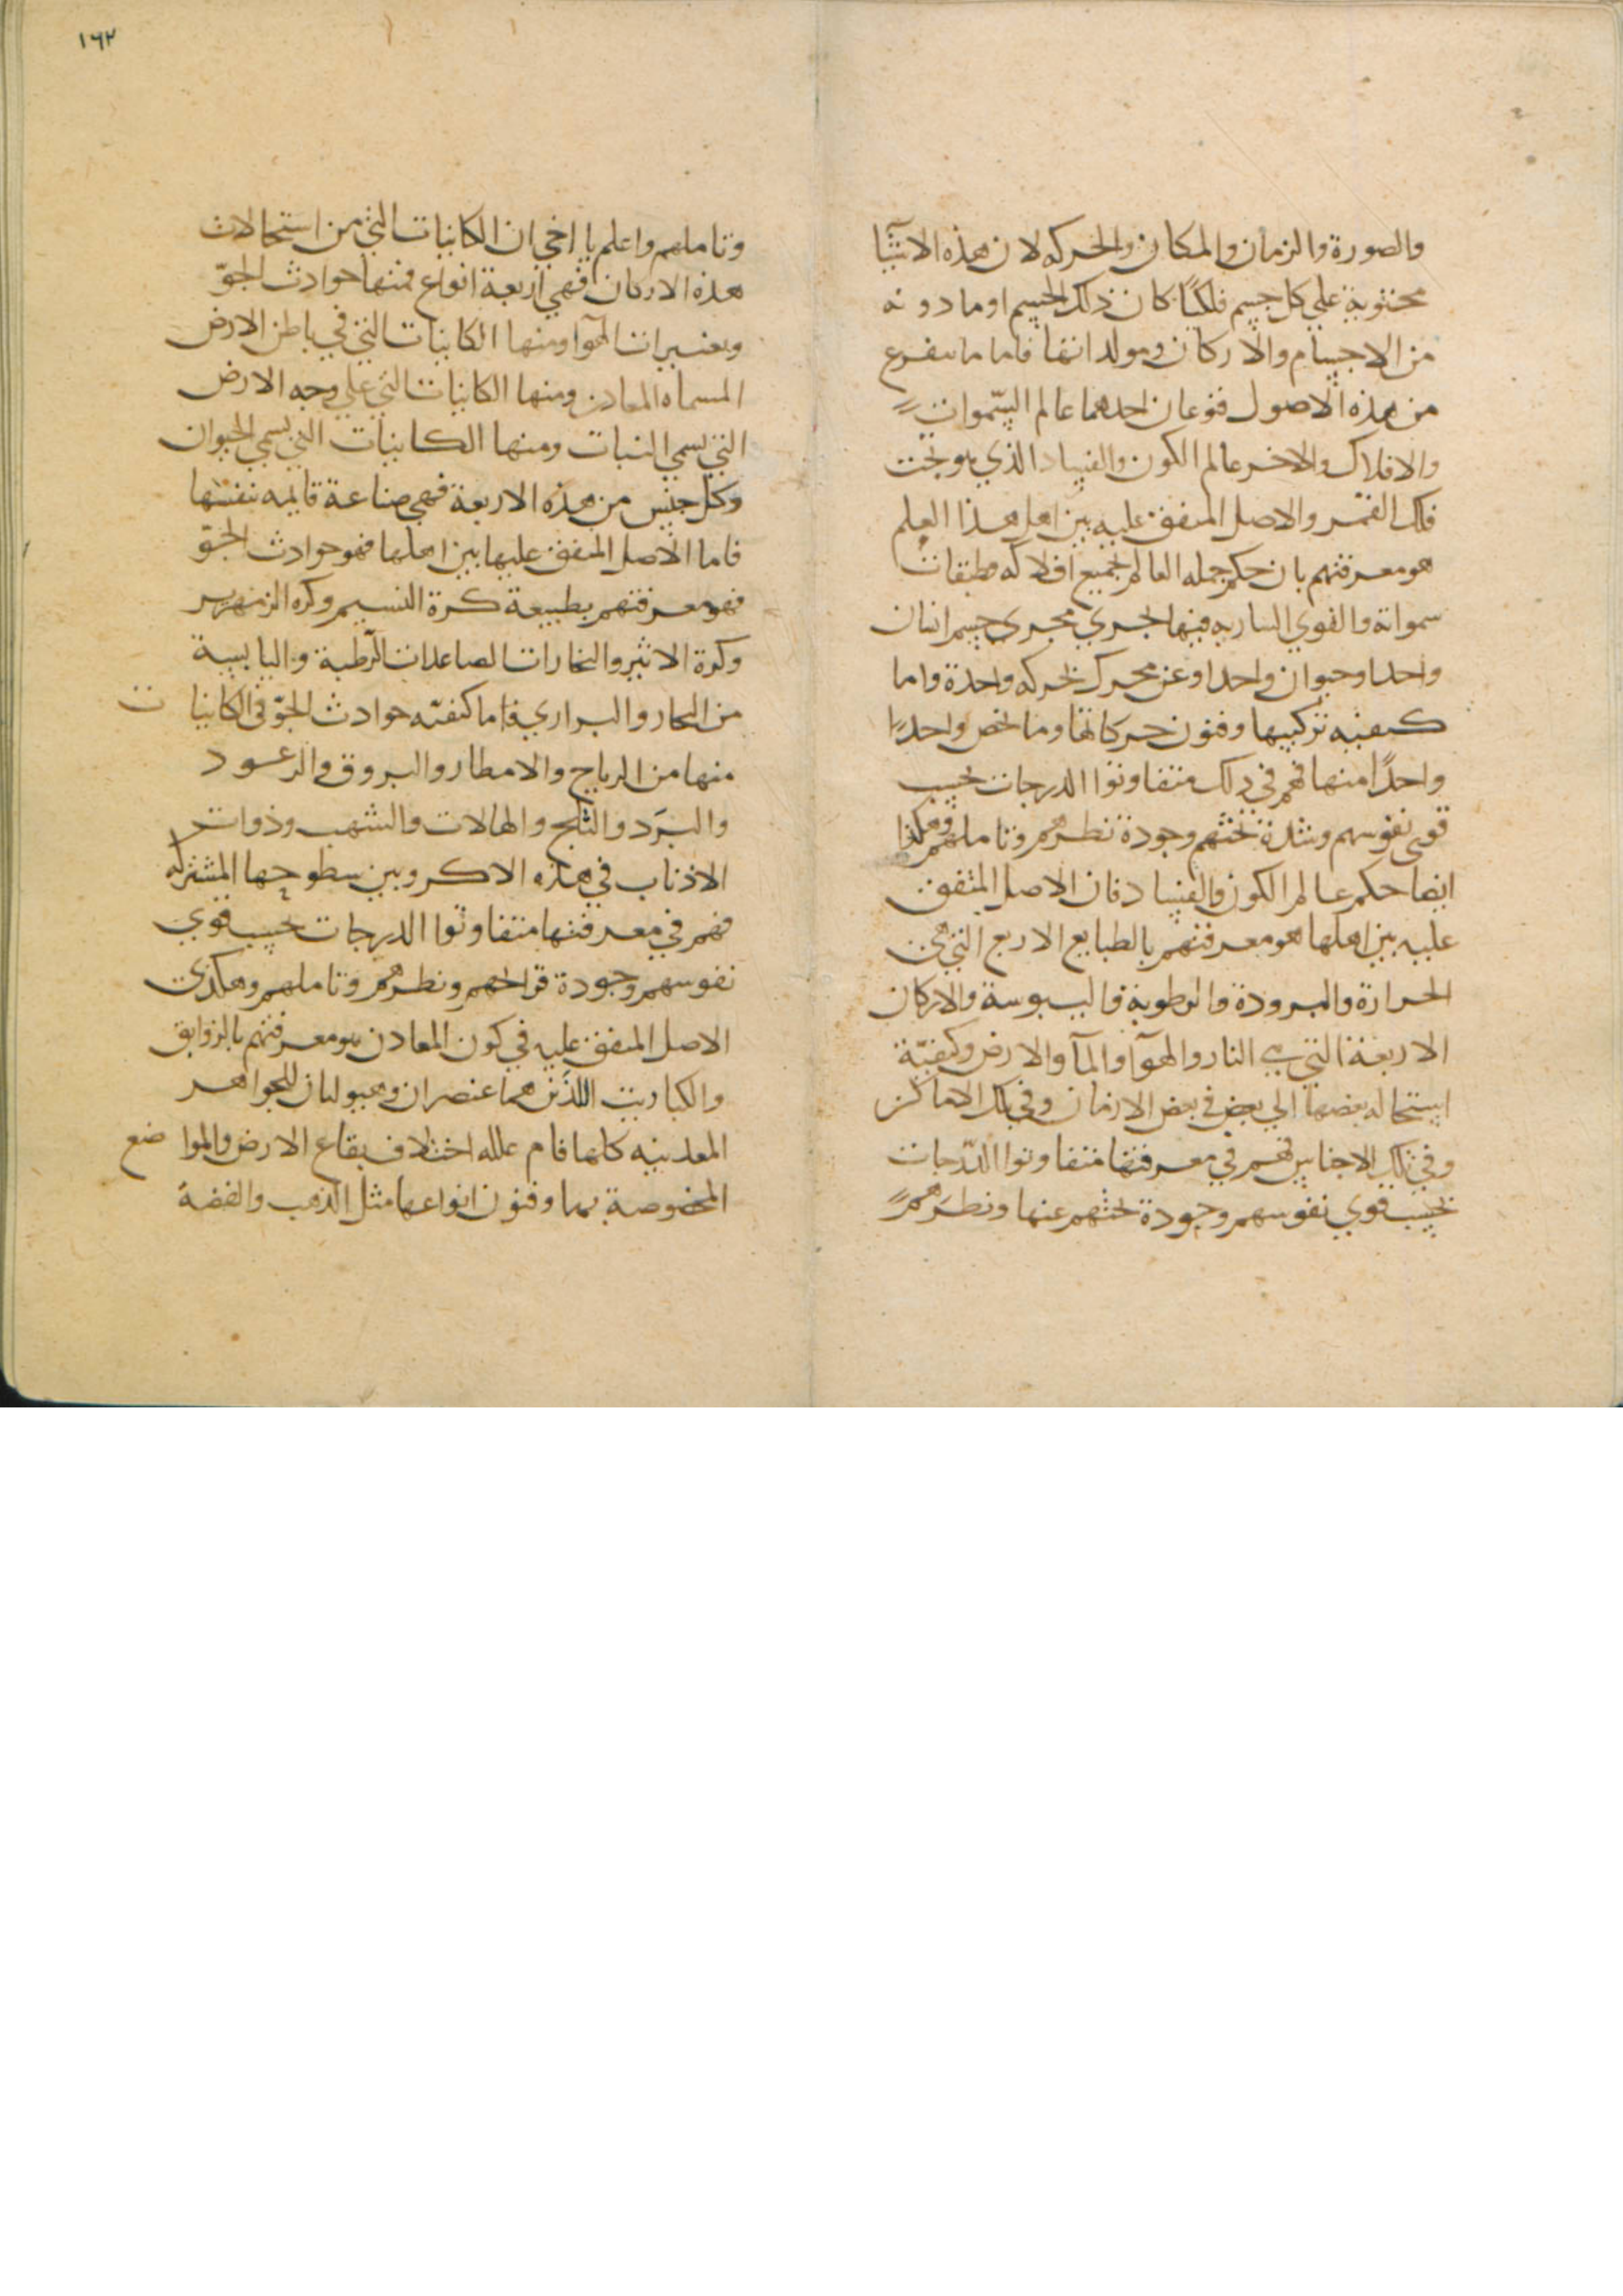 والصورة والزمان والمكان والحركه لان هذه الاشيآ
محتوية علي كل جسم فلكيًا كان ذلك الجسم او ما دونه
من الاجسام والاركان ومولداتها فاما ما يتفرع
من هذه الاصول فنوعان احدهما عالم السّموات
والافلاك والاخر عالم الكون والفساد الذي هو تحت
فلك القمر والاصل المتفق عليه بين اهل هذا العلم
هو معرفتهم بان حكم جمله العالم لجميع افلاكه وطبقات
سمواته والقوي الساريه فيها تجري مجري جسم انسان
واحد او حيوان واحد او عن محرك لحركه واحدة واما
كيفيه تركيبها وفنون حركاتها وما تخص واحدًا
واحدًا منها فهم في ذلك متفاوتوا الدرجات بحسب
قوى نفوسهم وشدة بحثهم وجودة نظرهم وتاملهم وهكذا
ايضا حكم عالم الكون والفساد فان الاصل المتفق
عليه بين اهلها هو معرفتهم بالطبايع الاربع التي هي
الحرارة والبرودة والرطوبة واليبوسة والاركان
الاربعة التي هي النار والهوآ والمآ والارض وكيفيّة
استحاله بعضها الي بعض في بعض الازمان وفي تلك الاماكن
وفي تلك الاجناس فهم في معرفتها متفاوتوا الدّرجات
بحسب قوي نفوسهم وجودة بحثهم عنها ونظرهم
١٦٢
وتاملهم واعلم يا اخي ان الكاينات التي من استحالات
هذه الاركان فهي اربعة انواع فمنها حوادث الجوّ
وتغييرات الهوآ ومنها الكاينات التي في باطن الارض
المسماه المعادن ومنها الكاينات التي علي وجه الارض
التي تسمي النبات ومنها الكاينات التي تسمي الحيوان
وكل جنس من هذه الاربعة فهي صناعة قايمه بنفسها
فاما الاصل المتفق عليها بين اهلها فهو حوادث الجوّ
فهو معرفتهم بطبيعة كرة النسيم وكره الزمهرير
وكرة الاثير والبخارات الصاعدات الرّطبة واليابسة
من البحار والبراري فاما كيفيّه حوادث الجوّ في الكاينات
منها من الرياح والامطار والبروق والرعود
والبَرَد والثلج والهالات والشهب وذوات
الاذناب في هذه الاكر وبين سطوحها المشتركه
فهم في معرفتها متفاوتوا الدرجات بحسب قوي
نفوسهم وجودة قرائحهم ونظرهم وتاملهم وهكذي
الاصل المتفق عليه في كون المعادن هو معرفتهم بالزوابق
والكباريت اللذَين هما عنصران وهيولتان للجواهر
المعدنيه كلها فاما علله اختلاف بقاع الارض والمواضع
المخصوصة بها وفنون انواعها مثل الذهب والفضة